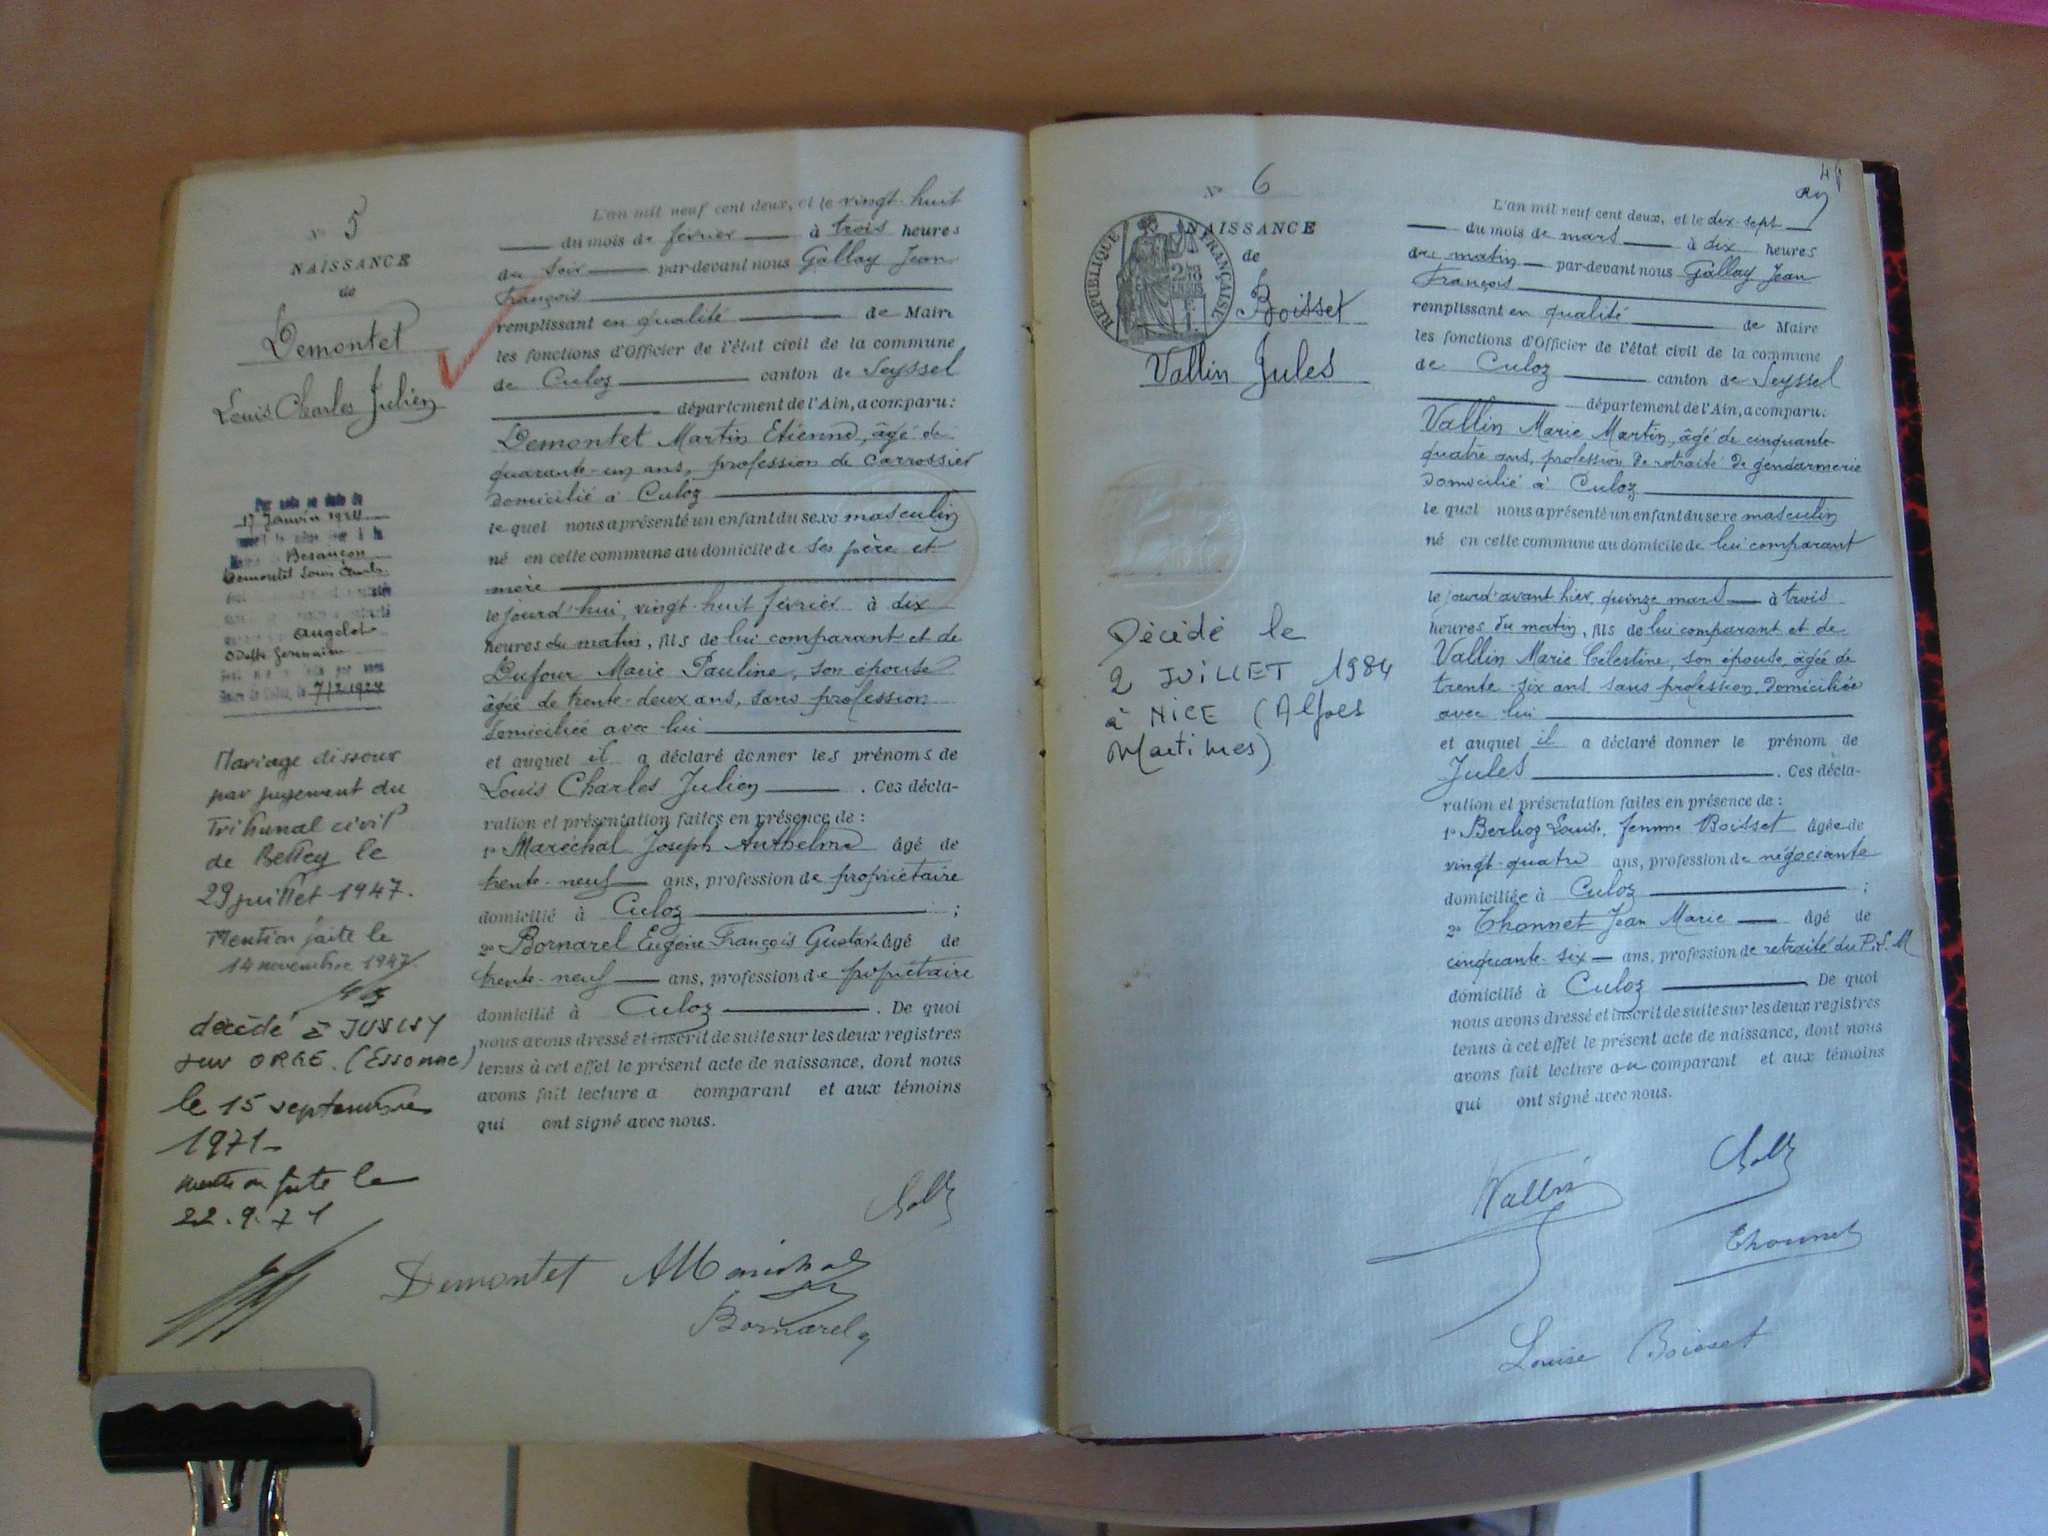 N° 5
NAISSANCE
de
Demontet
Louis Charles Julien
17 Janvier 1924
Besançon
Demontet Louis Charles
Angelot
Odette Germaine
7/2 1924
Mariage dissous
par jugement du
Tribunal civil
de Belley le
29 juillet 1947.
Mention faite le
14 novembre 1947
décédé à JUVISY
sur ORGE. (Essonne)
le 15 septembre
1971-
mention faite le
22.9.71
L'an mil neuf cent deux, et le vingt-huit
du mois de février à trois heures
du soir par-devant nous Gallay Jean
François
remplissant en qualité de Maire
les fonctions d'Officier de l'état civil de la commune
de Culoz canton de Seyssel
département de l'Ain, a comparu:
Demontet Martin Etienne, âgé de
quarante-un ans, profession de carrossier
domicilié à Culoz
le quel nous a présenté un enfant du sexe masculin
né en cette commune au domicile de ses père et
mère
le jourd'hui, vingt-huit février à dix
heures du matin, fils de lui comparant et de
Dufour Marie Pauline, son épouse
âgée de trente-deux ans, sans profession
domiciliée avec lui
et auquel il a déclaré donner les prénoms de
Louis Charles Julien . Ces décla-
ration et présentation faites en présence de :
1° Maréchal Joseph Anthelme âgé de
trente-neuf ans, profession de propriétaire
domicilié à Culoz ;
2° Bornarel Eugène François Gustave âgé de
trente-neuf ans, profession de propriétaire
domicilié à Culoz . De quoi
nous avons dressé et inscrit de suite sur les deux registres
tenus à cet effet le présent acte de naissance, dont nous
avons fait lecture a comparant et aux témoins
qui ont signé avec nous.
Demontet
Bornarel
N° 6
NAISSANCE
de
RÉPUBLIQUE FRANÇAISE
Boisset
Vallin Jules
Décédé le
2 JUILLET 1984
à NICE (Alpes
Maritimes)
L'an mil neuf cent deux, et le dix-sept
du mois de mars à dix heures
du matin par-devant nous Gallay Jean
François
remplissant en qualité de Maire
les fonctions d'Officier de l'état civil de la commune
de Culoz canton de Seyssel
département de l'Ain, a comparu:
Vallin Marie Martin, âgé de cinquante-
quatre ans, profession de retraité de gendarmerie
domicilié à Culoz
le quel nous a présenté un enfant du sexe masculin
né en cette commune au domicile de lui comparant
le jourd'avant hier, quinze mars à trois
heures du matin, fils de lui comparant et de
Vallin Marie Célestine, son épouse, âgée de
trente-six ans sans profession, domiciliée
avec lui
et auquel il a déclaré donner le prénom de
Jules . Ces décla-
ration et présentation faites en présence de :
1° Berlioz Louise, femme Boisset âgée de
vingt-quatre ans, profession de négociante
domiciliée à Culoz ;
2° Thonnet Jean Marie âgé de
cinquante-six ans, profession de retraité du P.L.M
domicilié à Culoz . De quoi
nous avons dressé et inscrit de suite sur les deux registres
tenus à cet effet le présent acte de naissance, dont nous
avons fait lecture au comparant et aux témoins
qui ont signé avec nous.
Vallin
Thonnet
Louise Boisset